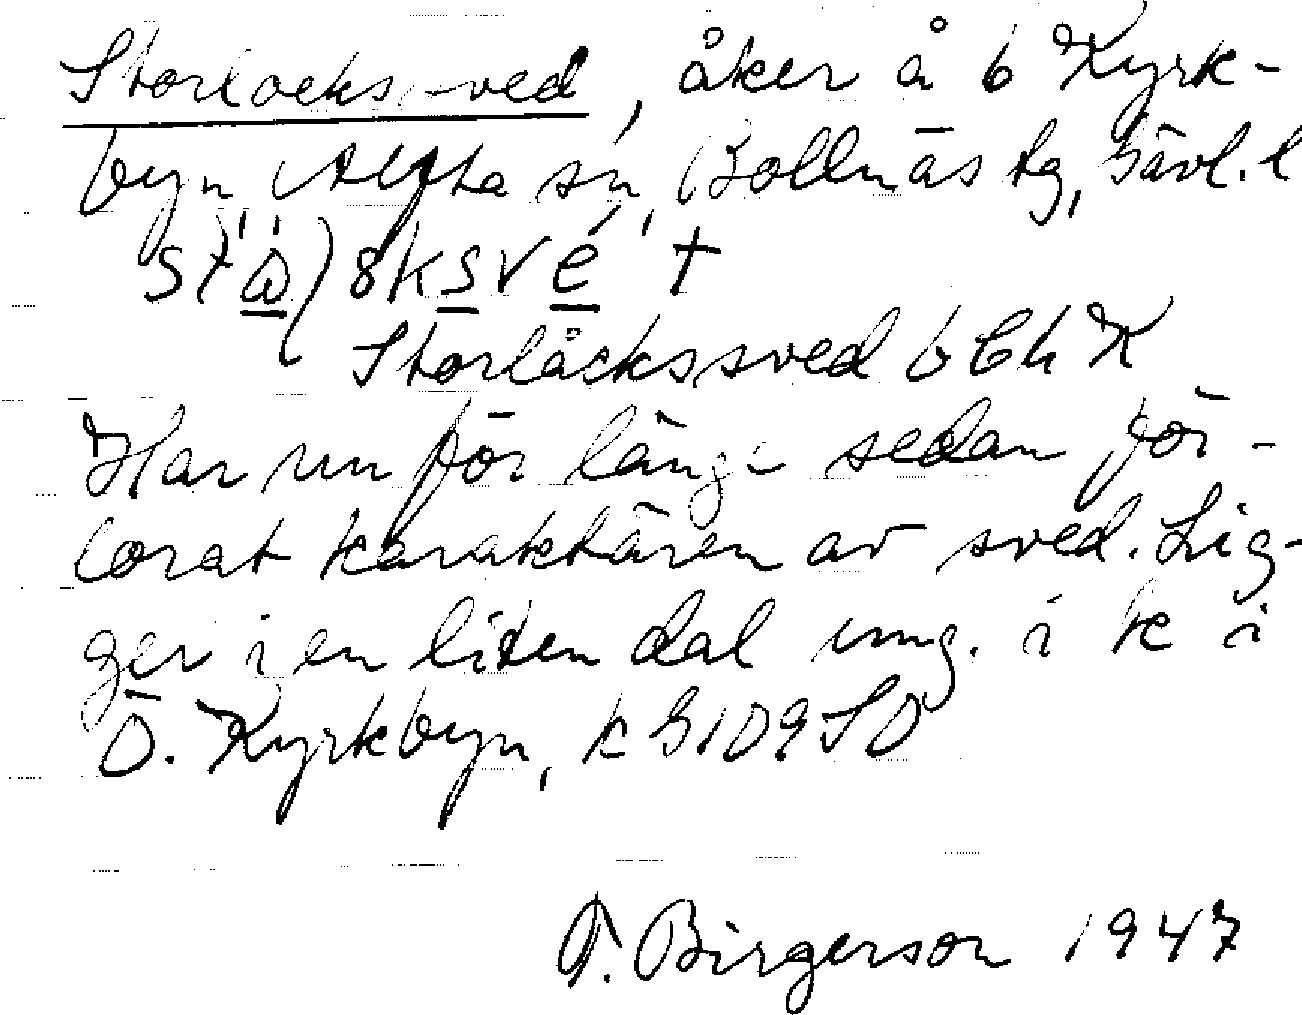 Storlocks-ved, åker å b Kyrk-
byn, Alfta sn, Bollnäs tg, Gävl. l
Storlåckssved b Ch K
Har nu för länge sedan för-
lorat karaktären av sved. Lig-
ger i en liten dal ung. i k i
Ö. Kyrkbyn, k G109SO
T. Birgerson 1947